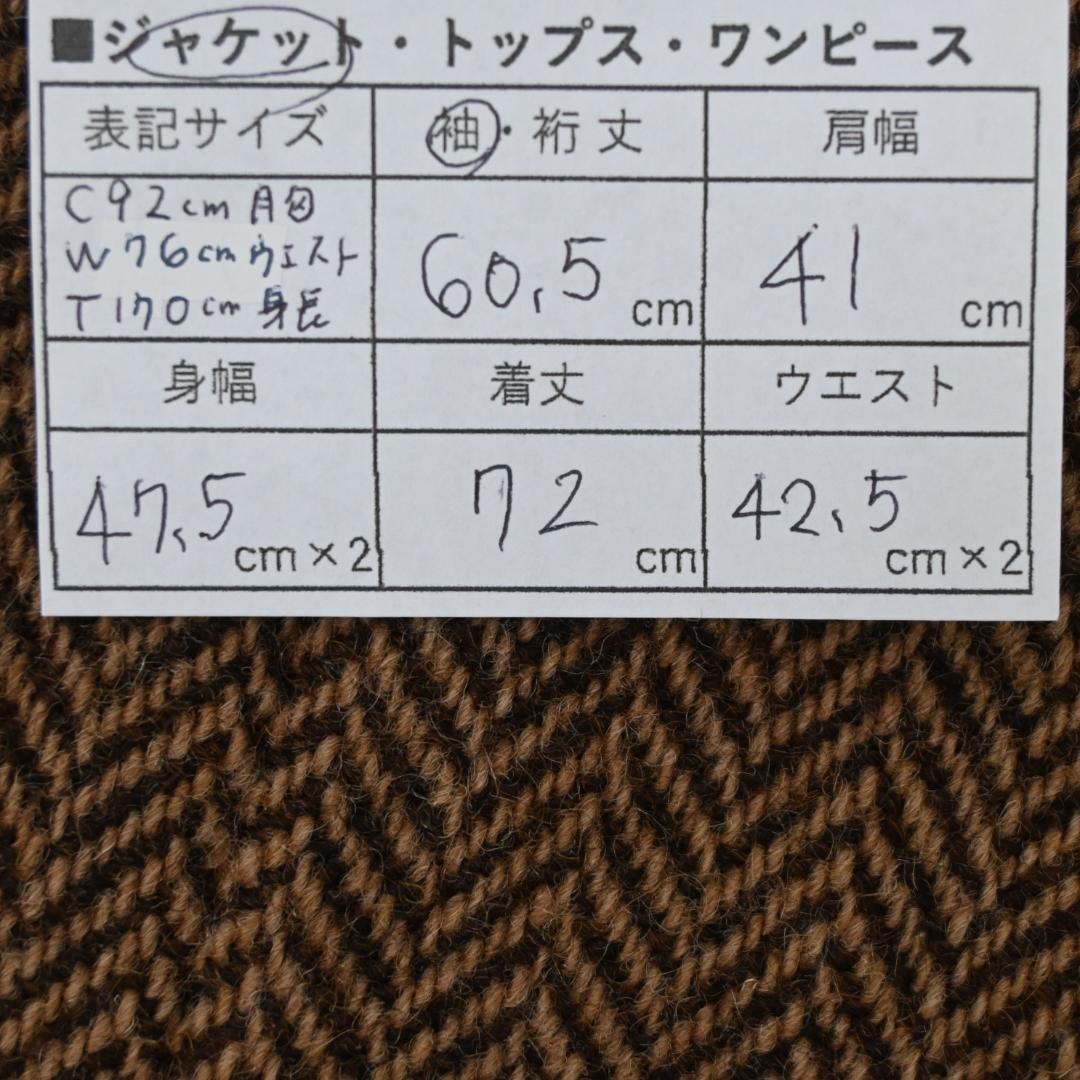 ■ジャケット・トップス・ワンピース
表記サイズ 袖・裄丈 肩幅
C92cm 胸
W76cmウエスト
T170cm 身長
60.5 cm
41 cm
身幅 着丈 ウエスト
47.5 cm×2
72 cm
42.5 cm×2